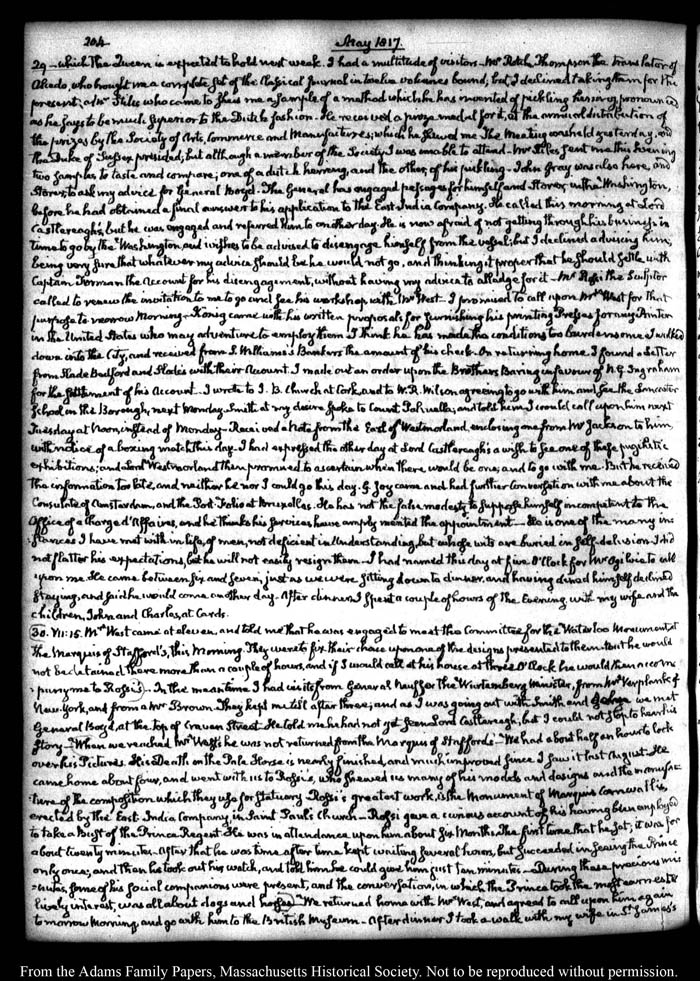 204
May 1817.
29 — which the Queen is expected to hold next week. I had a multitude of visitors — Mr Rotch, Thompson the translator of
Alcedo, who brought me a complete set of the Classical Journal in twelve volumes bound; but I declined taking them for the
present; a Mr Stiles who came to shew me a sample of a method which he has invented of pickling herring pronounced
as he says to be much superior to the Dutch fashion. He received a prize medal for it, at the annual distribution of
the prizes by the Society of Arts, Commerce and Manufactures; which he shewed me. The Meeting was held yesterday, and
the Duke of Sussex presided; but although a member of the Society I was unable to attend — Mr Stiles sent me this Evening
two samples to taste and compare; one of a dutch herring, and the other of his pickling — John Gray was also here, and
Storer, to ask my advice for General Boyd. The General has engaged passages for himself and Storer, in the Washington,
before he had obtained a final answer to his application to the East India Company. He called this morning at Lord
Castlereagh's, but he was engaged and referred him to another day. He is now afraid of not getting through his business in
time to go by the Washington, and wishes to be advised to disengage himself from the vessel; but I declined advising him,
being very sure that whatever my advice should be he would not go, and thinking it proper that he should settle with
Captain Forman the Account for his disengagement, without having my advice to alledge for it — Mr Rossi the Sculptor
called to renew the invitation to me to go and see his workshop with Mr West — I promised to call upon Mr West for that
purpose to-morrow Morning — König came with his written proposals for furnishing his printing Presses for any Printer
in the United States who may adventure to employ them. I think he has made the conditions too burdensome. I walked
down into the City, and received from S. Williams's Bankers the amount of his check. On returning home I found a Letter
from Slade Bedford and Slade's with their Account. I made out an order upon the Brothers Baring in favour of N. G. Ingraham
for the settlement of his Account — I wrote to I. B. Church at Cork, and to W. R. Wilson agreeing to go with him and see the Lancaster
School in the Borough, next Monday. Smith at my desire spoke to Count and told him I would call upon him next
Tuesday at Noon, instead of Monday — Received a Note from the Earl of Westmorland, enclosing one from Mr Jackson to him,
with notice of a boxing match this day. I had expressed the other day at Lord Castlereagh's a wish to see one of these pugilistic
exhibitions; and Lord Westmorland then promised to ascertain when there would be one, and to go with me. But he received
the information too late, and neither he nor I could go this day. G. Joy came and had further Conversation with me about the
Consulate of Amsterdam, and the Port-Folio at Bruxelles. He has not the false modesty to suppose himself incompetent to the
Office of a Chargé d'Affaires, and he thinks his services have amply merited the appointment — He is one of the many in-
stances I have met with in life, of men, not deficient in Understanding, but whose wits are buried in self-delusion. I did
not flatter his expectations, but he will not easily resign them — I had named this day at five O'Clock for Mr Ogilvie to call
upon me. He came between six and seven, just as we were sitting down to dinner, and having dined himself declined
staying, and said he would come another day. After dinner I spent a couple of hours of the Evening, with my wife and the
children, John and Charles, at Cards.
30. VII:15. Mr West came at eleven, and told me that he was engaged to meet the Committee for the Waterloo Monument at
the Marquis of Stafford's, this Morning. They were to fix their choice upon one of the designs presented to them. But he would
not be detained there more than a couple of hours, and if I would call at his house at three O'Clock he would then accom-
pany me to Rossi's — In the mean time I had visits from General Neuffer the Wurtemberg minister, from Mr Verplanck of
New-York, and from a Mr Brown. They kept me till after three; and as I was going out with Smith and George we met
General Boyd, at the top of Craven Street. He told me he had not yet seen Lord Castlereagh, but I could not stop to hear his
story — When we reached Mr West's he was not returned from the Marquis of Stafford's — We had about half an hour to look
over his Pictures. His Death on the Pale Horse is nearly finished, and much improved since I saw it last August. He
came home about four, and went with us to Rossi's, who shewed us many of his models and designs and the manufac-
ture of the composition which they use for Statuary. Rossi's greatest work, is the Monument of Marquis Cornwallis,
erected by the East India Company, in Saint Paul's Church — Rossi gave a curious account of his having been employed
to take a Bust of the Prince Regent. He was in attendance upon him about six Months. The first time that he sat, it was for
about twenty minutes. After that he was time after time kept waiting several hours, but succeeded in seeing the Prince
only once; and then he took out his watch, and told him he could give him just ten minutes — During these precious mi-
nutes, some of his social companions were present, and the conversation, in which the Prince took the most earnest &
lively interest, was all about dogs and horses. We returned home with Mr West, and agreed to call upon him again
to-morrow Morning, and go with him to the British Museum — After dinner I took a walk with my wife in St. James's
From the Adams Family Papers, Massachusetts Historical Society. Not to be reproduced without permission.